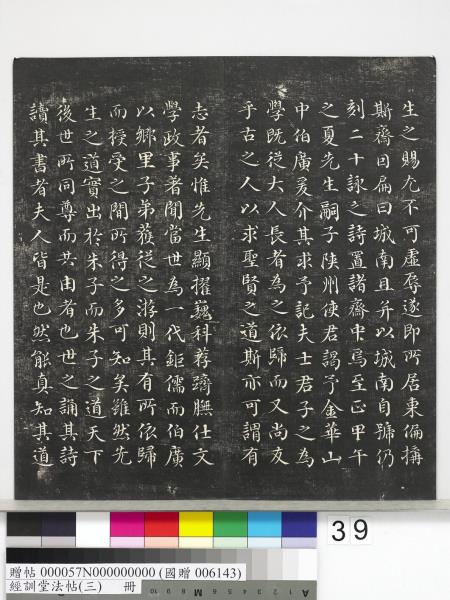 生之賜尤不可虛辱遂即所居東偏搆
斯齋因扁曰城南且并以城南自號仍
刻二十詠之詩置諸齋中焉至正甲午
之夏先生嗣子陝州使君謁予金華山
中伯廣爰介其求予記夫士君子之為
學既從大人長者為之依歸而又尚友
乎古之人以求聖賢之道斯亦可謂有
志者矣惟先生顯擢巍科荐躋膴仕文
學政事著聞當世為一代鉅儒而伯廣
以鄉里子弟從之游則其有所依歸
而授受之間所得之多可知矣雖然先
生之道實出於朱子而朱子之道天下
後世所同尊而共由者也世之誦其詩
讀其書者夫人皆是也然能真知其道
39
贈帖 000057N000000000 (國贈 006143)
經訓堂法帖(三) 冊